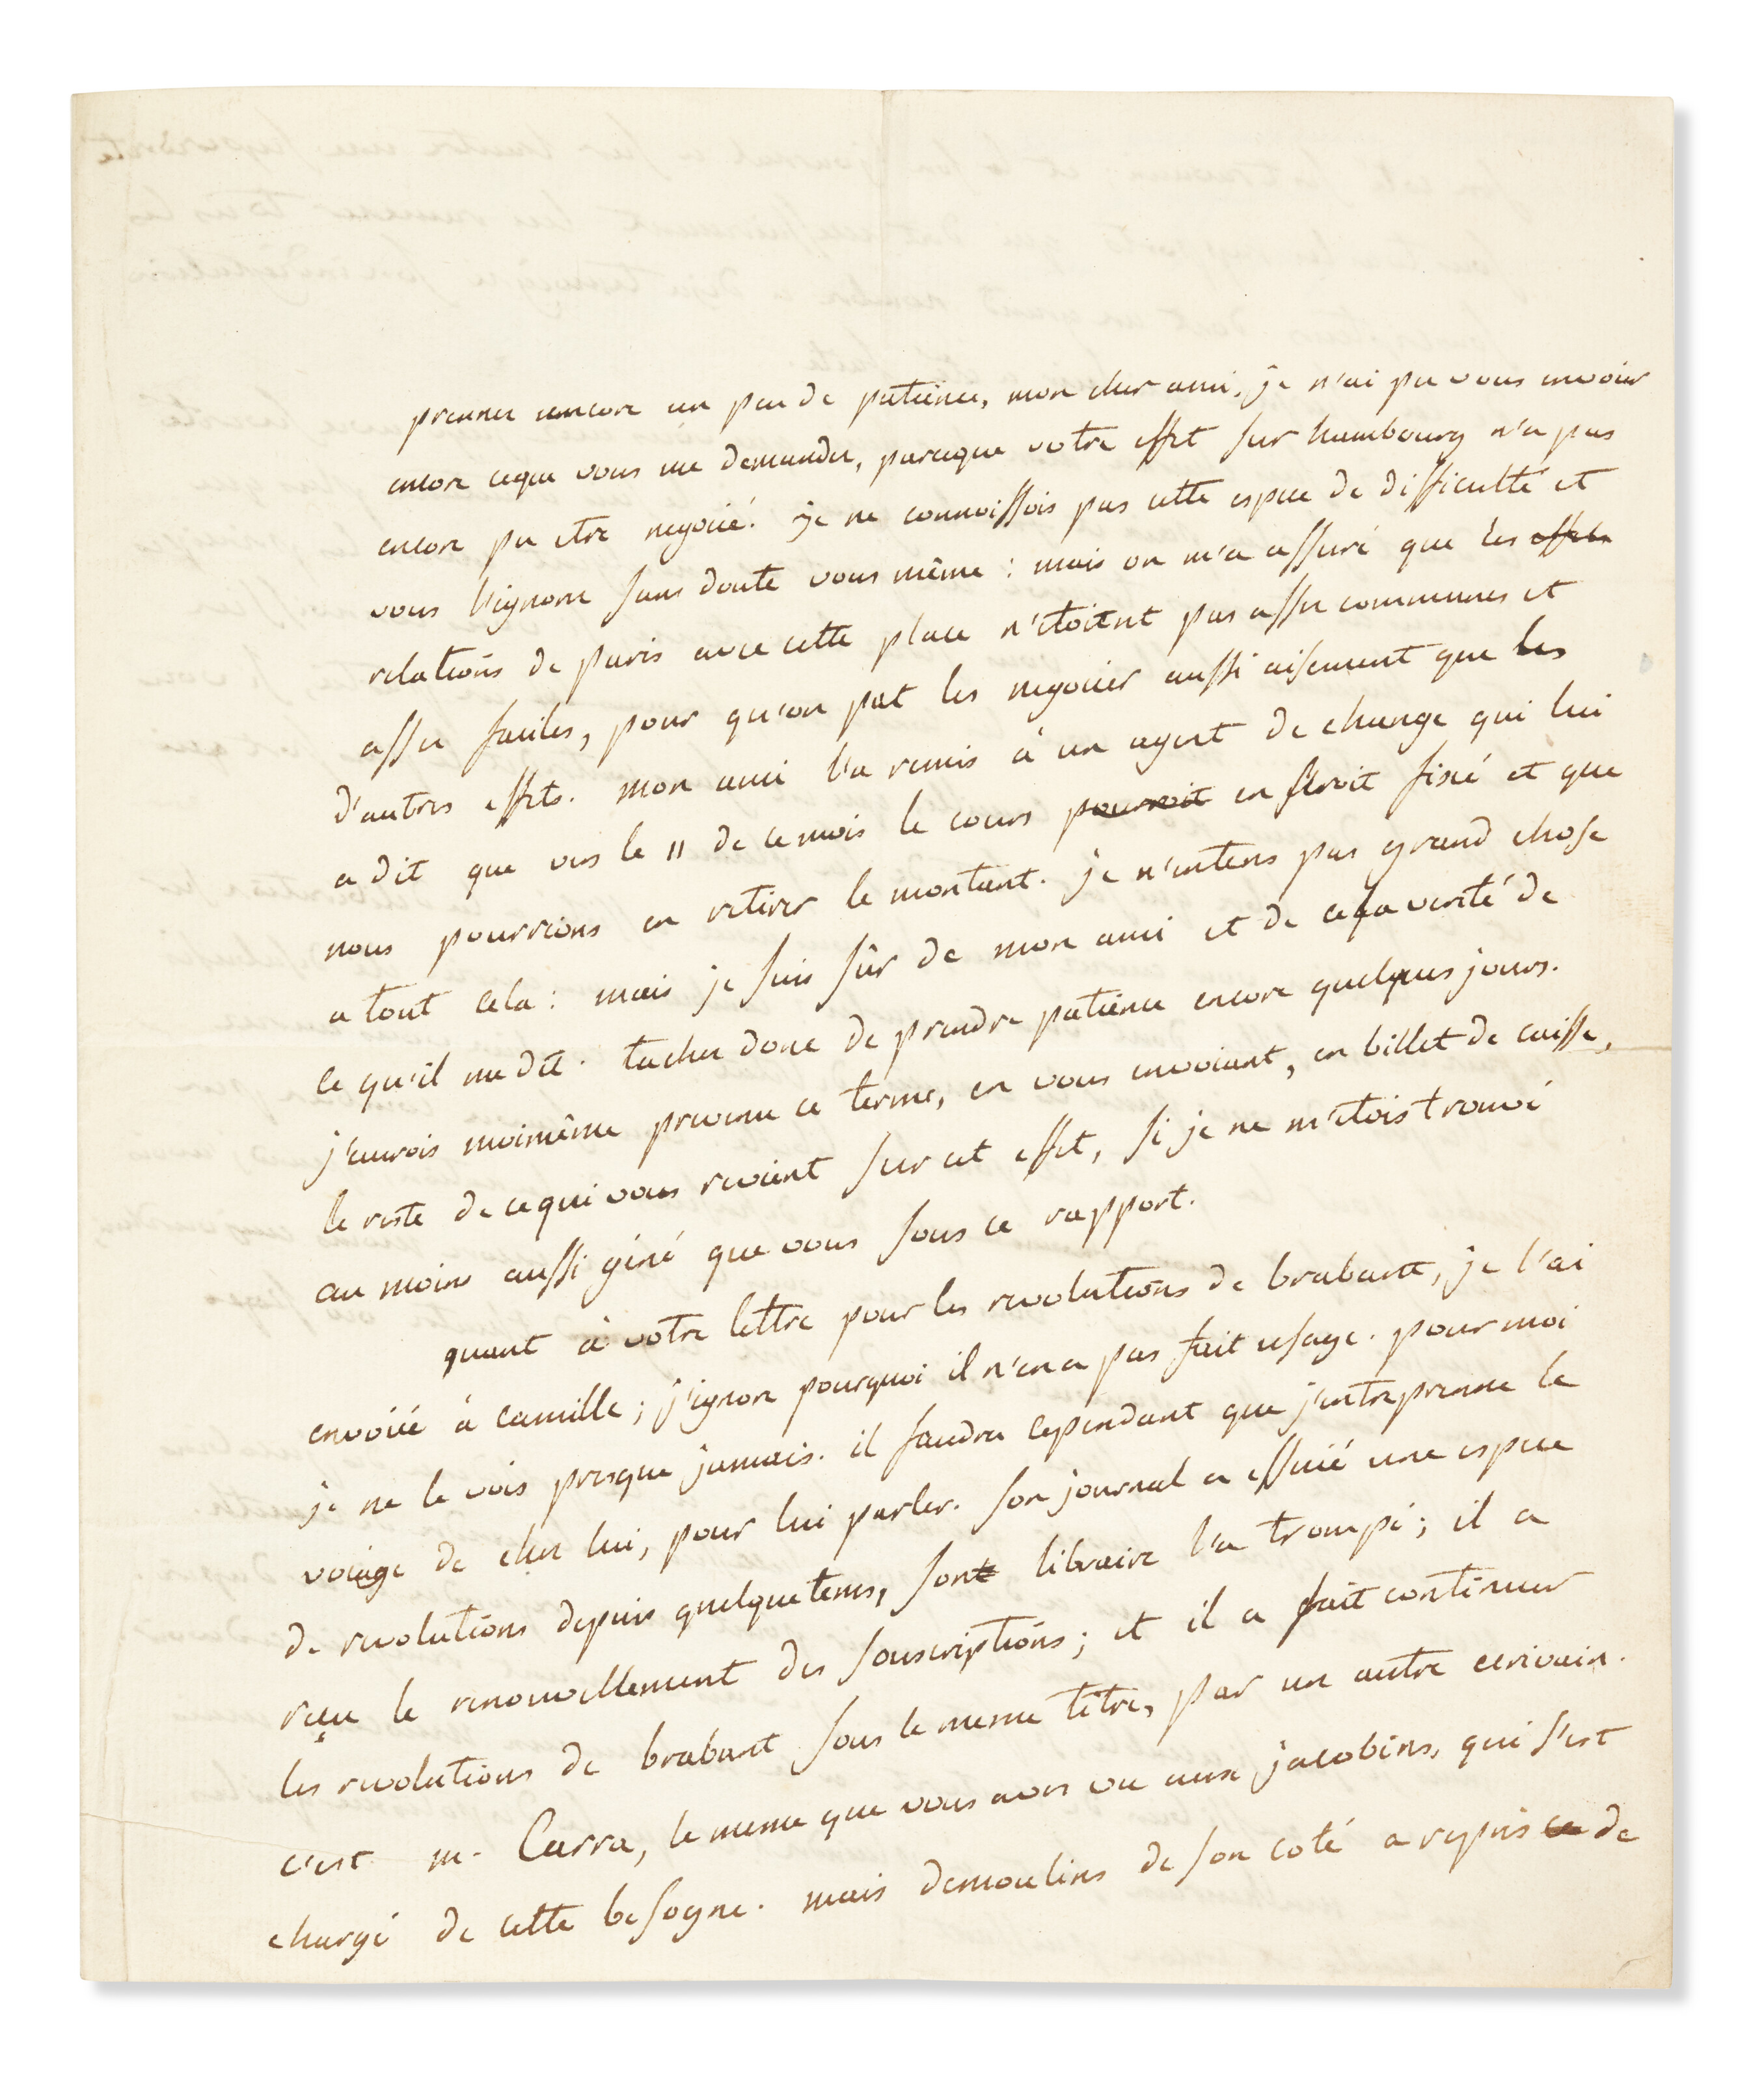 prenez encore un peu de patience, mon cher ami, je n'ai pu vous envoier
encore ceque vous me demandez, parceque votre effet sur hambourg n'a pas
encore pu etre negocié. je ne connoissois pas cette espece de difficulté et
vous l'ignorez sans doute vous même : mais on m'a assuré que les effets
relations de paris avec cette place n'étoient pas assez communes et
assez faciles, pour qu'on put les negocier aussi aisement que les
d'autres effets. mon ami l'a remis à un agent de change qui lui
a dit que vers le 11 de ce mois le cours pourroit en seroit fixé et que
nous pourrions en retirer le montant. je n'entens pas grand chose
a tout cela : mais je suis sûr de mon ami et de la verité de
ce qu'il me dit. tachez donc de prendre patience encore quelques jours.
j'aurois moimême prevenu ce terme, en vous envoiant, en billet de caisse,
le reste de cequi vous revient sur cet effet, si je ne m'etois trouvé
au moins aussi gêné que vous sous ce rapport.
quant à votre lettre pour les revolutions de brabant, je l'ai
envoiée à camille ; j'ignore pourquoi il n'en a pas fait usage. pour moi
je ne le vois presque jamais. il faudra cependant que j'entreprenne le
voiage de chez lui, pour lui parler. son journal a essuié une espece
de revolutions depuis quelque tems, son libraire l'a trompé ; il a
reçu le renouvellement des souscriptions ; et il a fait continuer
les revolutions de brabant sous le meme titre, par un autre ecrivain.
c'est m. Carra, le meme que vous avez vu aux jacobins, qui s'est
chargé de cette besogne. mais demoulins de son coté a repris ce de